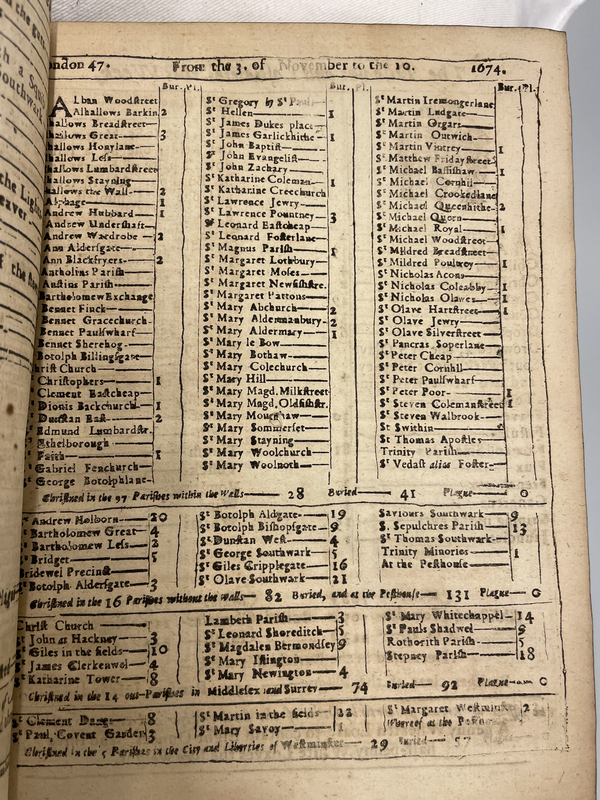 ndon 47. From the 3. of November to the 10. 1674.
Bur. Pl.
Alban Woodſtreet
Alhallows Barkin 2
hallows Breadſtreet
hallows Great 3
hallows Honylane
hallows Leſs
hallows Lumbardſtreet
hallows Stayning
hallows the Wall 2
Alphage 1
Andrew Hubbard 1
Andrew Underſhaft
Andrew Wardrobe 2
Ann Alderſgate
Ann Blackfryers 2
Antholins Pariſh
Auſtins Pariſh
Bartholomew Exchange
Bennet Finck
Bennet Gracechurch
Bennet Paulſwharf
Bennet Sherehog
Botolph Billingſgate
hriſt Church
Chriſtophers 1
Clement Eaſtcheap
Dionis Backchurch 1
Dunſtan Eaſt 2
Edmund Lumbardſtr.
Ethelborough
Faith 1
Gabriel Fenchurch
George Botolphlane
Bur. Pl.
St Gregory by St Pauls
St Hellen 1
St James Dukes place
St James Garlickhithe 1
St John Baptiſt
St John Evangeliſt
St John Zachary
St Katharine Coleman 1
St Katharine Creechurch
St Lawrence Jewry
St Lawrence Pountney 3
St Leonard Eaſtcheap
St Leonard Foſterlane
St Magnus Pariſh 1
St Margaret Lothbury
St Margaret Moſes
St Margaret Newfiſhſtre.
St Margaret Pattons
St Mary Abchurch 2
St Mary Aldermanbury 2
St Mary Aldermary 1
St Mary le Bow
St Mary Bothaw
St Mary Colechurch
St Mary Hill
St Mary Magd. Milkſtreet
St Mary Magd. Oldfiſhſtr.
St Mary Mounthaw
St Mary Sommerſet
St Mary Stayning
St Mary Woolchurch
St Mary Woolnoth
Bur. Pl.
St Martin Iremongerlane
St Martin Ludgate
St Martin Orgars
St Martin Outwich
St Martin Vintrey 1
St Matthew Fridayſtreet
St Michael Baſſiſhaw 1
St Michael Cornhil
St Michael Crookedlane
St Michael Queenhithe 2
St Michael Quern
St Michael Royal 1
St Michael Woodſtreet
St Mildred Breadſtreet
St Mildred Poultrey 1
St Nicholas Acons
St Nicholas Coleabby 1
St Nicholas Olaves 1
St Olave Hartſtreet 1
St Olave Jewry
St Olave Silverſtreet
St Pancras Soperlane
St Peter Cheap
St Peter Cornhil
St Peter Paulſwharf
St Peter Poor 1
St Steven Colemanſtreet 1
St Steven Walbrook
St Swithin
St Thomas Apoſtles
Trinity Pariſh
St Vedaſt alias Foſter
Chriſtned in the 97 Pariſhes within the Walls 28 Buried 41 Plague 0
Andrew Holborn 20
Bartholomew Great 4
Bartholomew Leſs 2
Bridget 5
Bridewel Precinct
Botolph Alderſgate 3
St Botolph Aldgate 19
St Botolph Biſhopſgate 9
St Dunſtan Weſt 4
St George Southwark 5
St Giles Cripplegate 16
St Olave Southwark 21
Saviours Southwark 9
S. Sepulchres Pariſh 13
St Thomas Southwark
Trinity Minories 1
At the Peſthouſe
Chriſtned in the 16 Pariſhes without the Walls 82 Buried, and at the Peſthouſe 131 Plague 0
Chriſt Church
St John at Hackney 3
St Giles in the fields 10
St James Clerkenwel 4
St Katharine Tower 8
Lambeth Pariſh 3
St Leonard Shoreditch 5
St Magdalen Bermondſey 9
St Mary Iſlington
St Mary Newington 4
St Mary Whitechappel 14
St Pauls Shadwel 9
Rothorith Pariſh 5
Stepney Pariſh 18
Chriſtned in the 14 out-Pariſhes in Middleſex and Surrey 74 Buried 92 Plague 0
St Clement Danes 8
St Paul Covent Garden 3
St Martin in the fields 22
St Mary Savoy 1
St Margaret Weſtminſter 2
Whereof at the
Chriſtned in the 5 Pariſhes in the City and Liberties of Weſtminſter 29 Buried